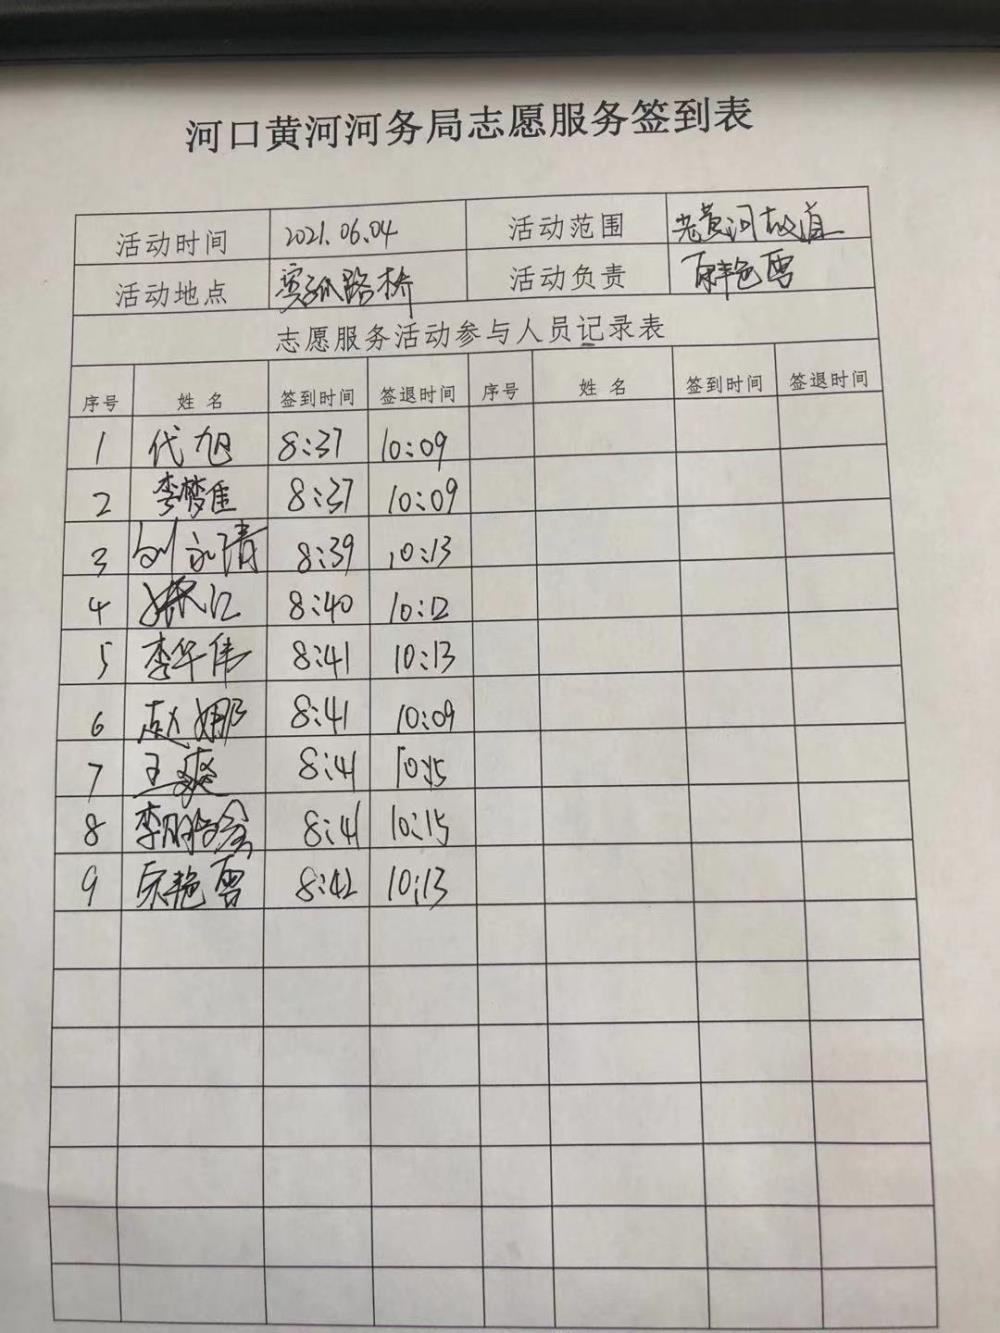 河口黄河河务局志愿服务签到表
活动时间 2021.06.04 活动范围 老黄河故道
活动地点 孤路桥 活动负责 艳雪
志愿服务活动参与人员记录表
序号 姓名 签到时间 签退时间 序号 姓名 签到时间 签退时间
1 代旭 8:37 10:09
2 李梦佳 8:37 10:09
3 刘永清 8:39 10:13
4 8:40 10:12
5 李华伟 8:41 10:13
6 赵娜 8:41 10:09
7 王爽 8:41 10:15
8 李 8:41 10:15
9 艳雪 8:42 10:13